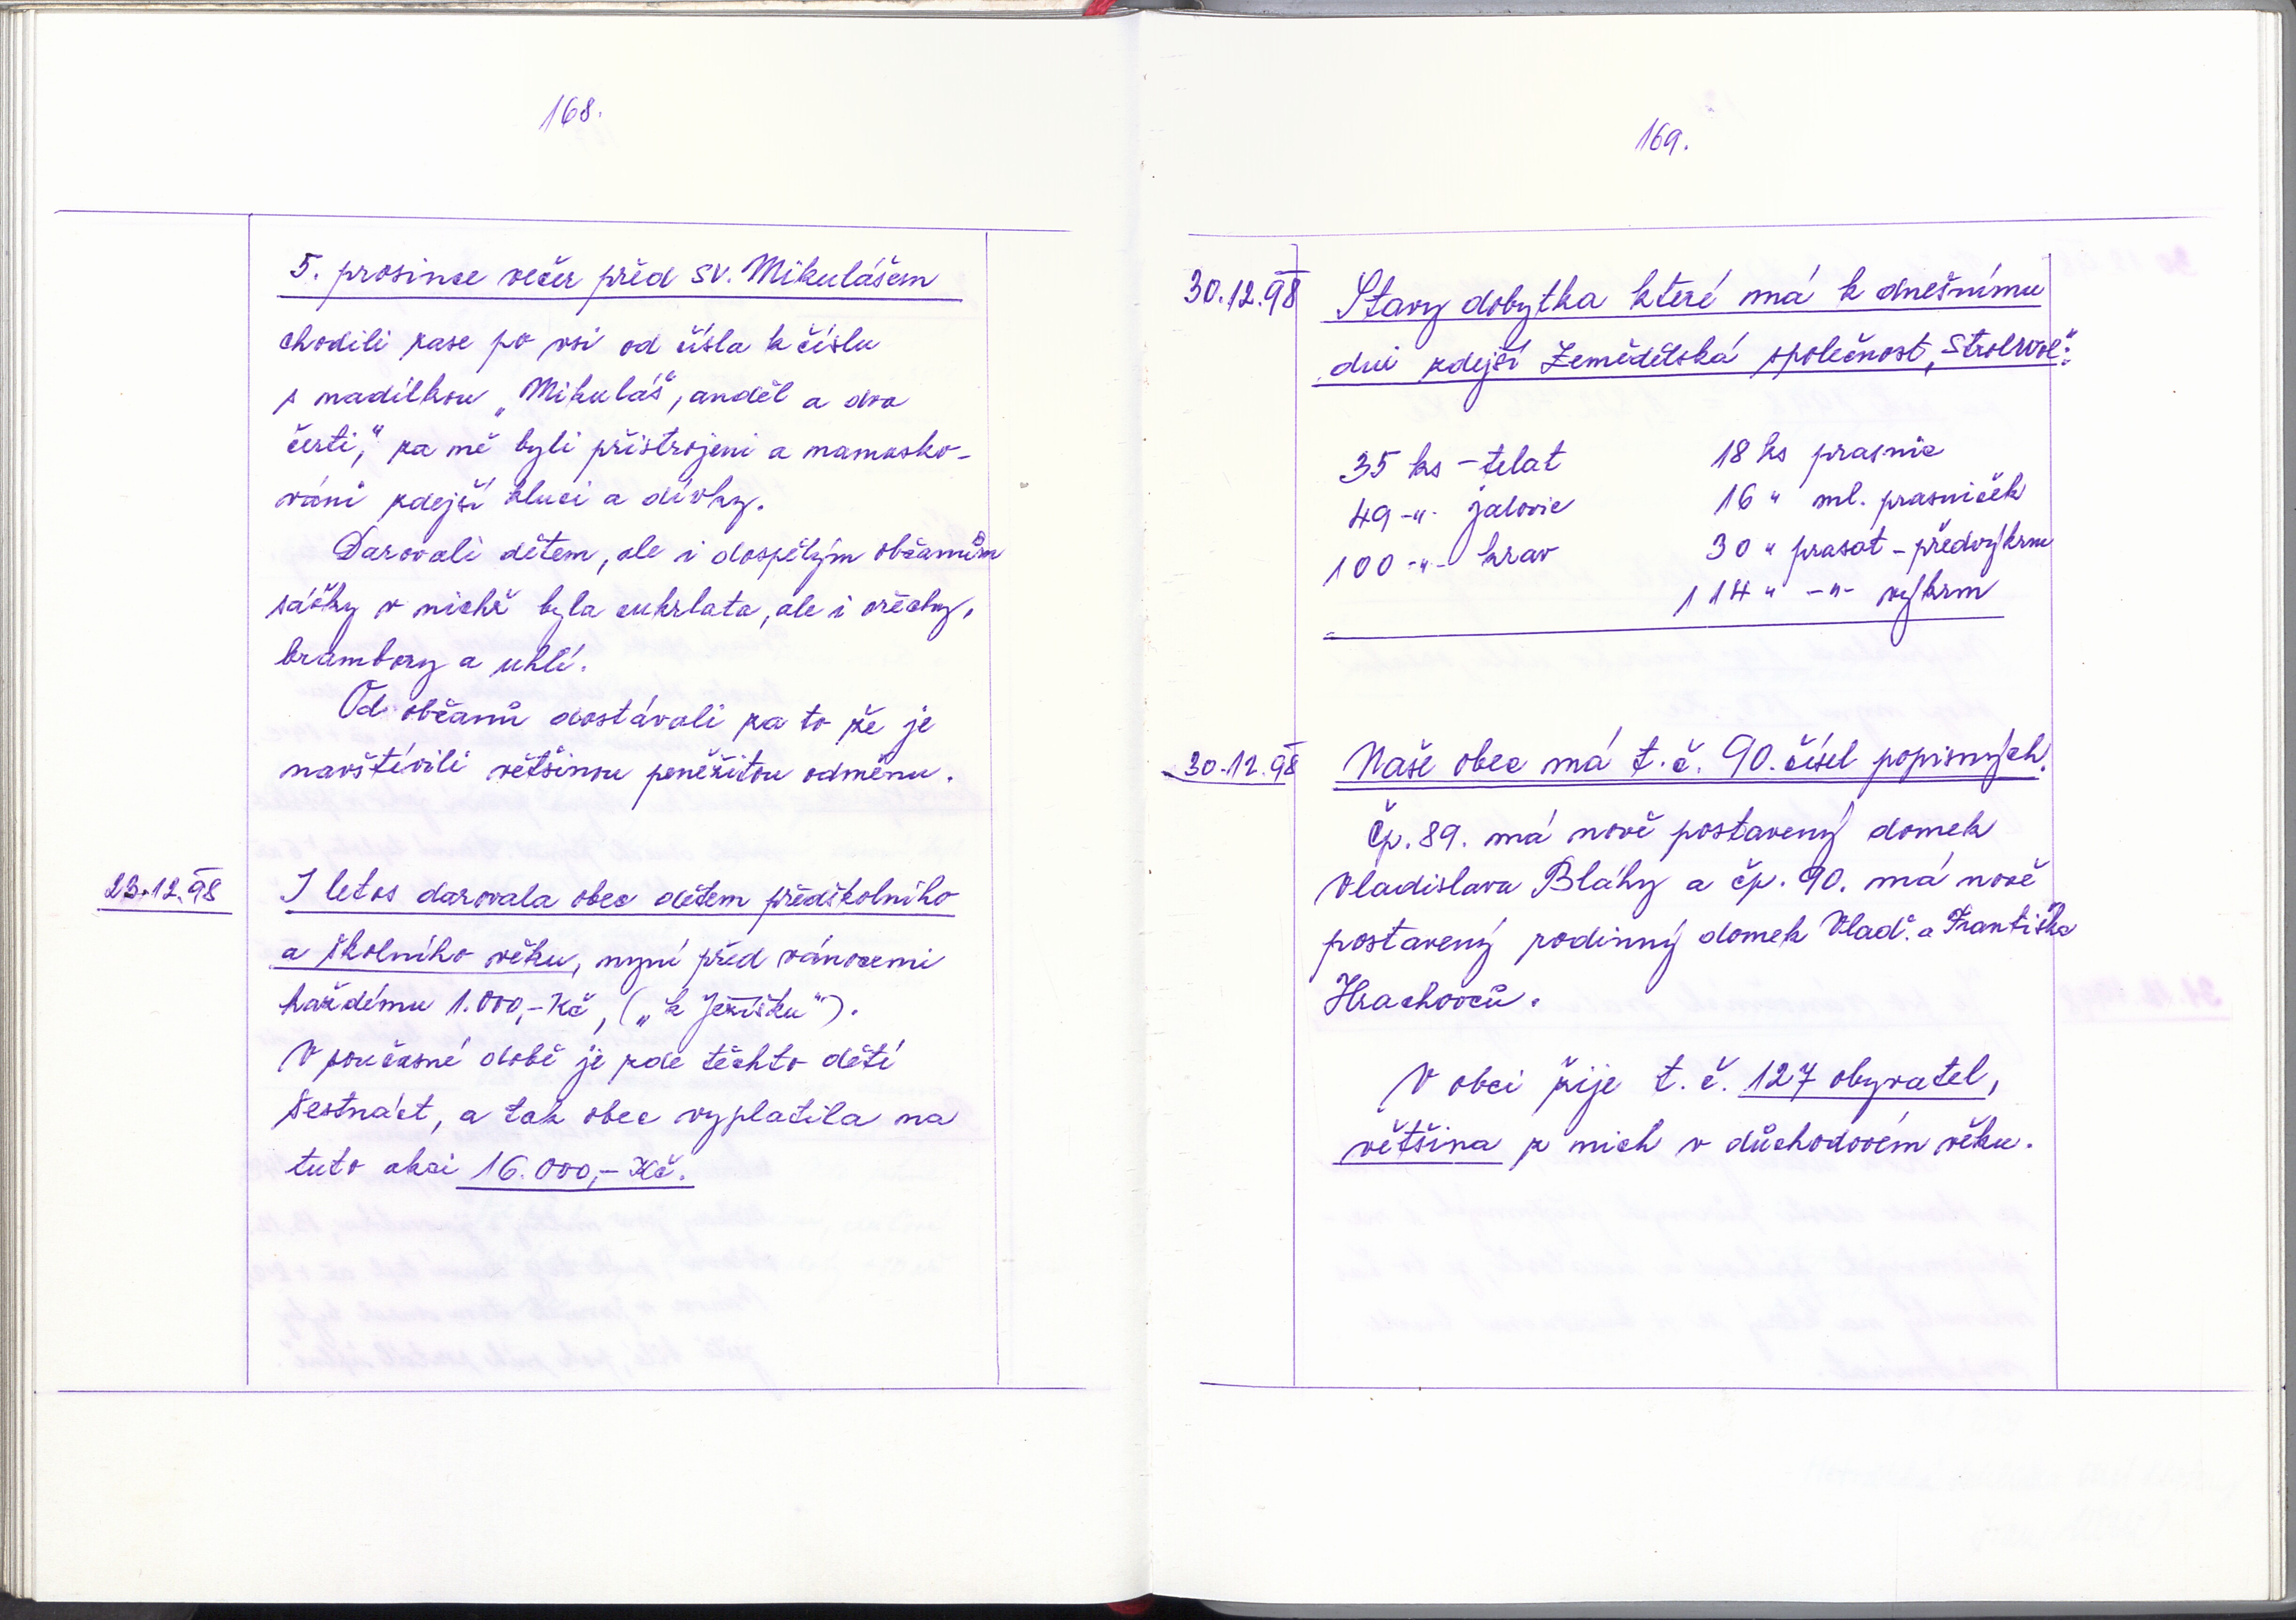 168.
5. prosince večer před sv. Mikulášem
chodili zase po vsi od čísla k číslu
s nadílkou „Mikuláš", anděl a dva
čerti," za mě byli přistrojeni a namasko-
váni zdejší kluci a dívky.
Darovali dětem, ale i dospělým občanům
sáčky v nichž byla cukrlata, ale i ořechy,
brambory a uhlí.
Od občanů dostávali za to že je
navštívili většinou peněžitou odměnu.
23.12.98
I letos darovala obec dětem předškolního
a školního věku, nyní před vánocemi
každému 1.000,- Kč, („k Ježíšku").
V současné době je zde těchto dětí
šestnáct, a tak obec vyplatila na
tuto akci 16.000,- Kč.
169.
30.12.98
Stavy dobytka které má k dnešnímu
dni zdejší Zemědělská společnost,
35 ks - telat
49 -"- jalovic
100 -"- krav
18 ks prasnic
16 " ml. prasniček
30 " prasat - předvýkrm
114 " -"- výkrm
30.12.98
Naše obec má t.č. 90. čísel popisných.
Čp. 89. má nově postavený domek
Vladislava Bláhy a čp. 90. má nově
postavený rodinný domek Vlad. a Františka
Hrachovců.
V obci žije t.č. 127 obyvatel,
většina z nich v důchodovém věku.